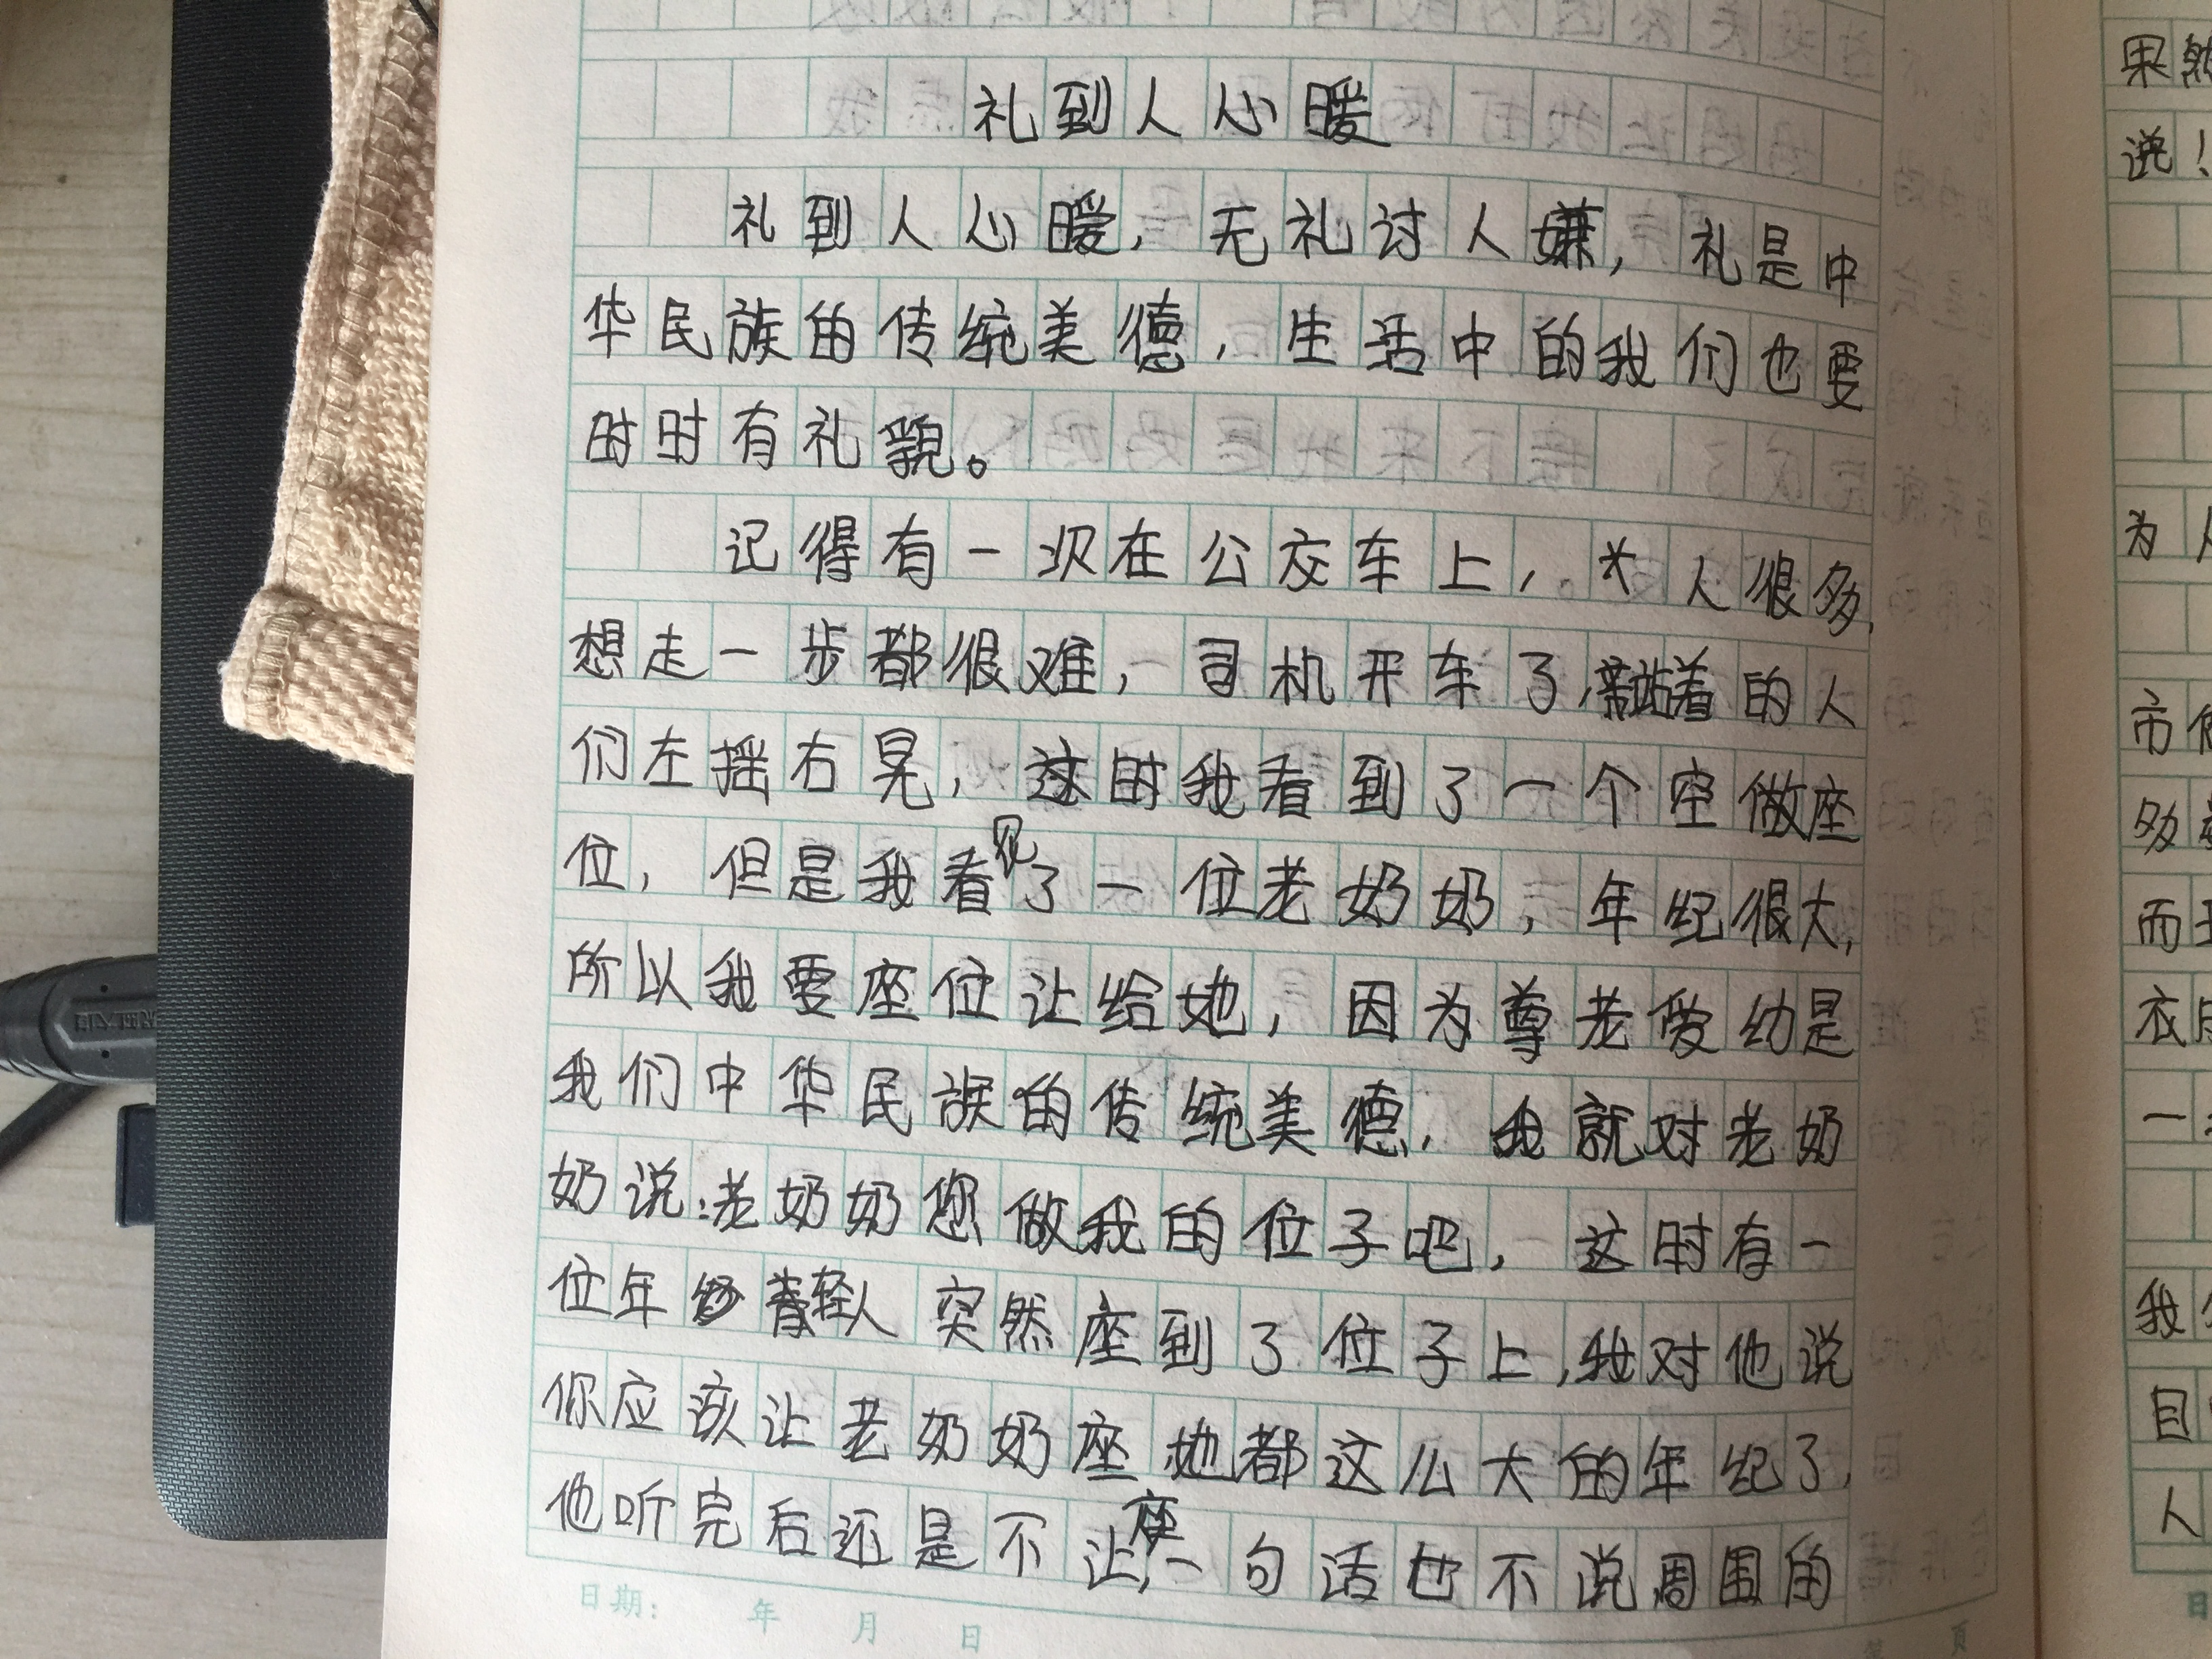 礼到人心暖
礼到人心暖，无礼讨人嫌，礼是中
华民族的传统美德，生活中的我们也要
时时有礼貌。
记得有一次在公交车上，人很多，
想走一步都很难，司机开车了，站着的人
们左摇右晃，这时我看到了一个空做座
位，但是我看见了一位老奶奶，年纪很大，
所以我要座位让给她，因为尊老爱幼是
我们中华民族的传统美德，我就对老奶
奶说：老奶奶您做我的位子吧，这时有一
位年青轻人突然座到了位子上，我对他说
你应该让老奶奶座她都这么大的年纪了，
他听完后还是不让座，一句话也不说周围的
果然
说！
为人
市
多
而
衣
一
我
目
人
日期： 年 月 日
第 页
日